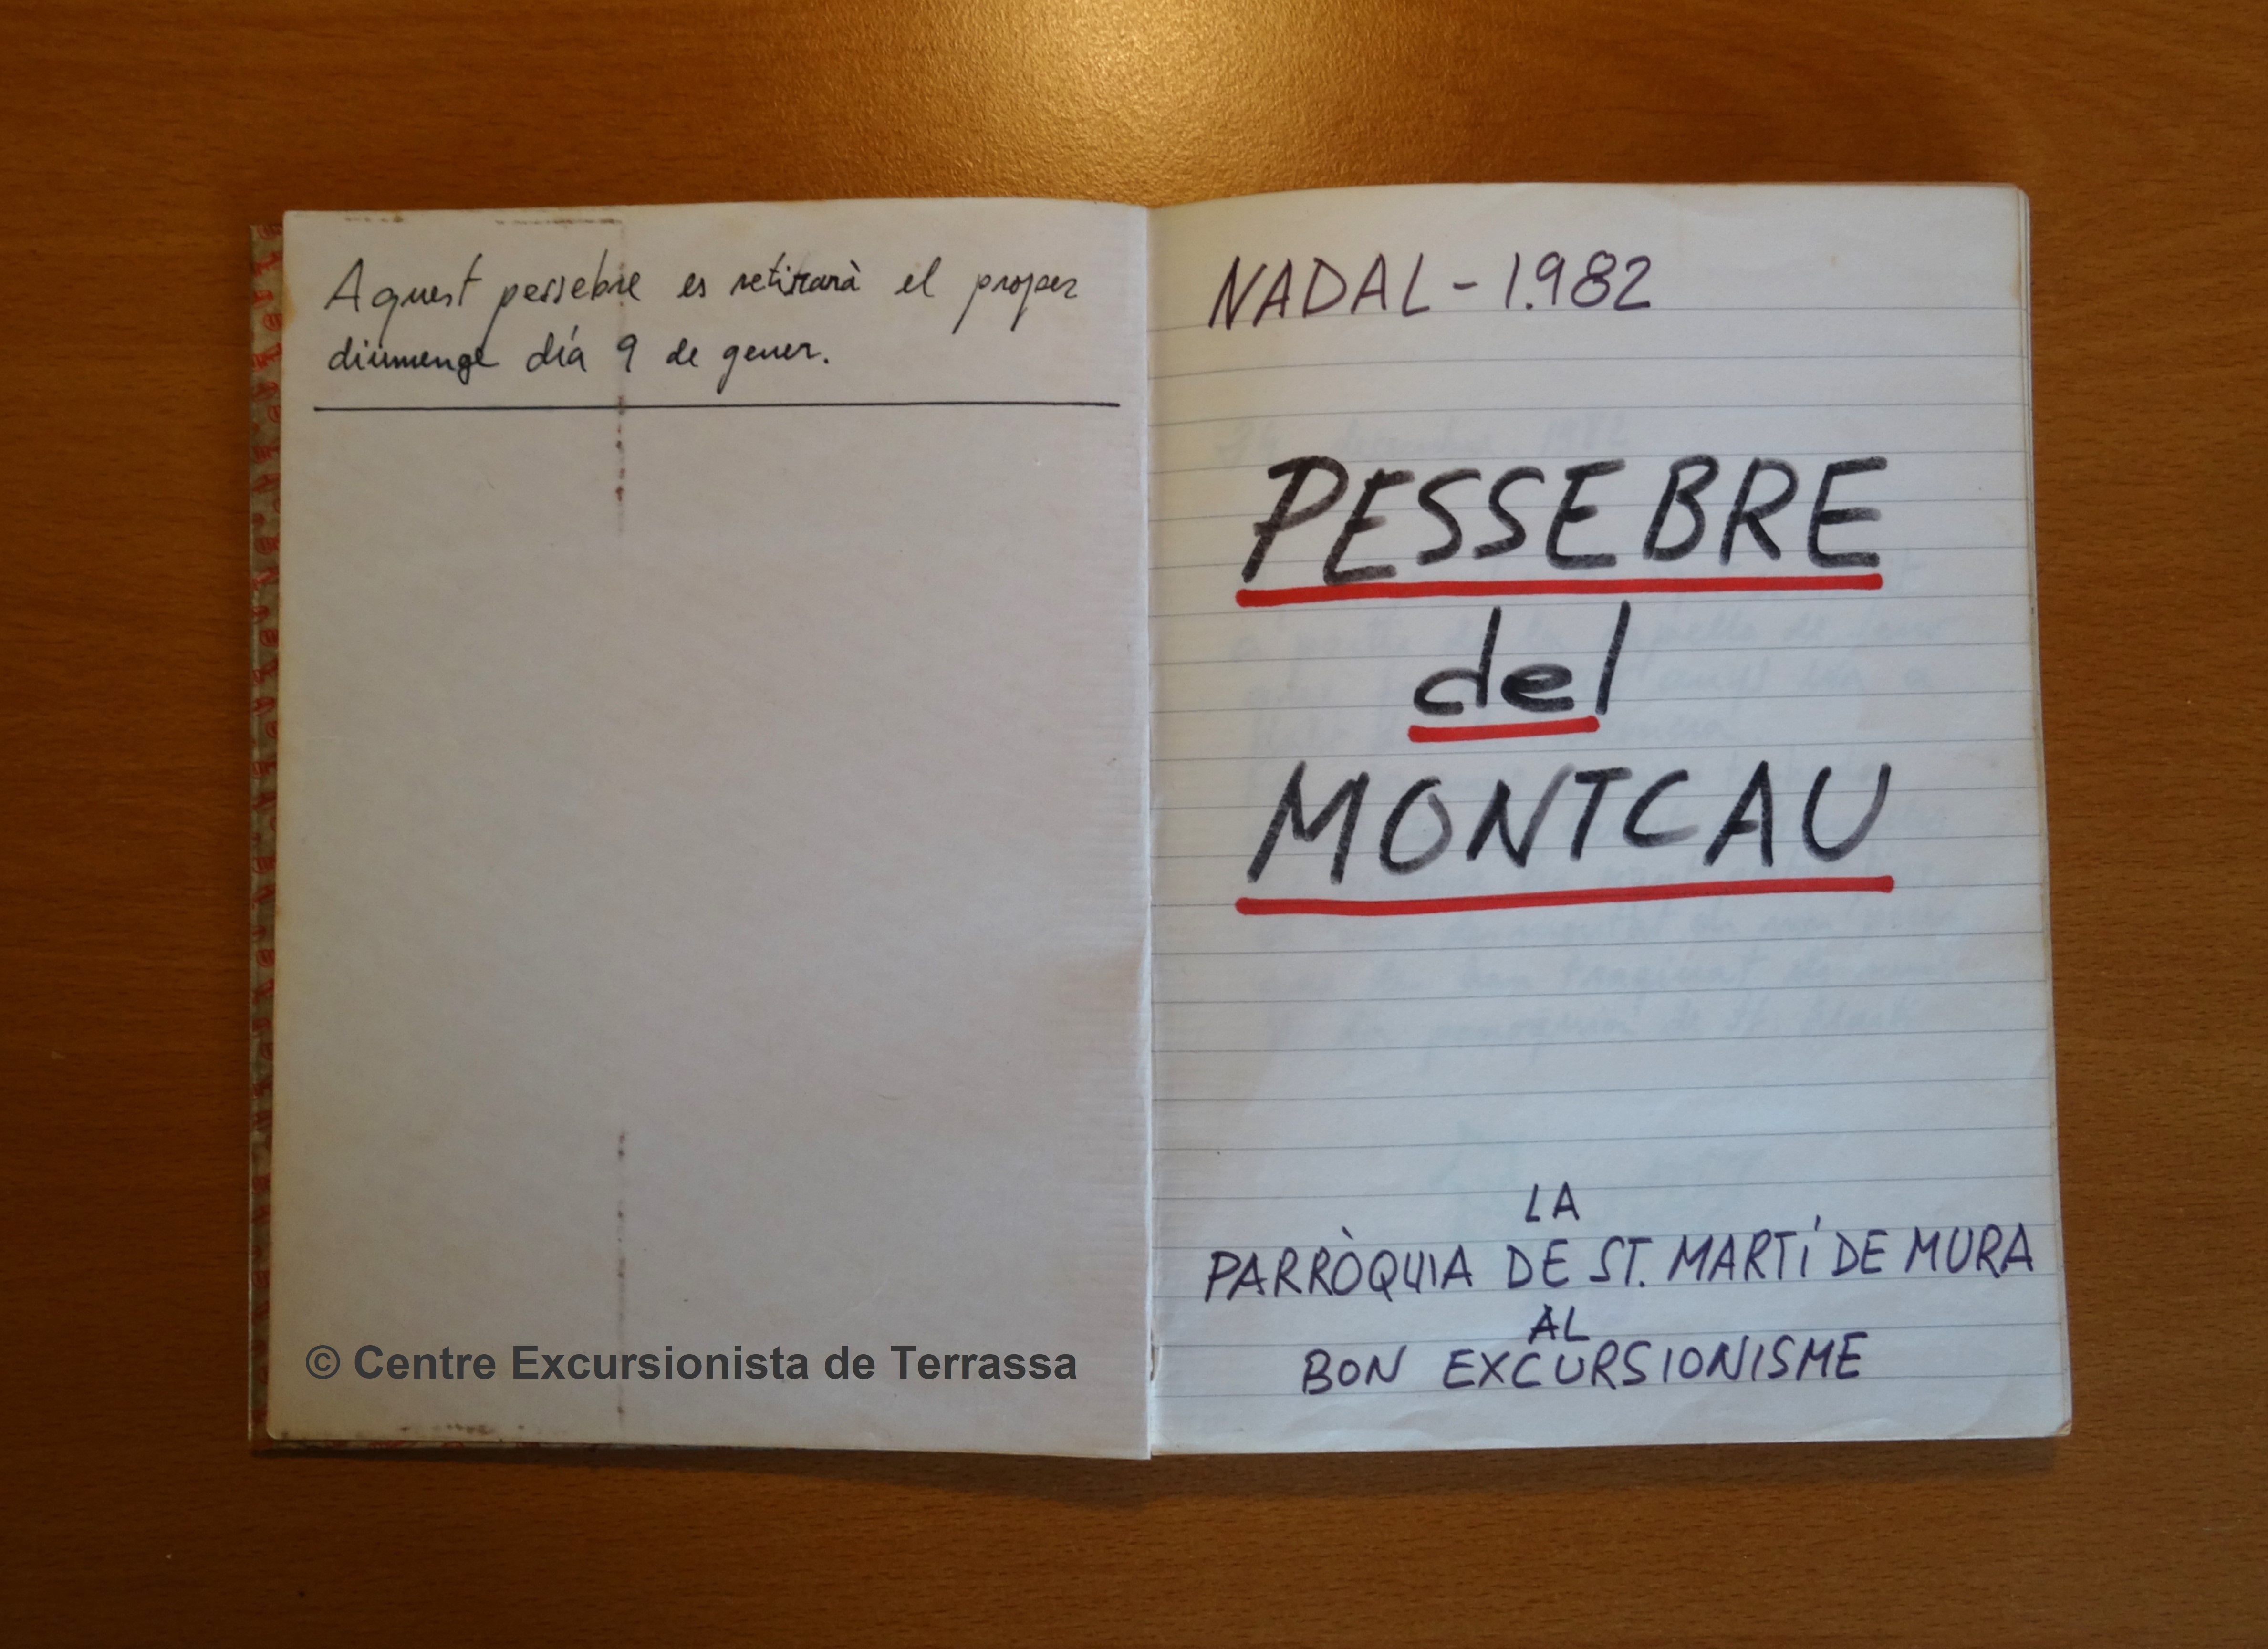 Aquest pessebre es retirarà el proper
diumenge día 9 de gener.
© Centre Excursionista de Terrassa
NADAL - 1.982
PESSEBRE
del
MONTCAU
LA
PARRÒQUIA DE ST. MARTÍ DE MURA
AL
BON EXCURSIONISME